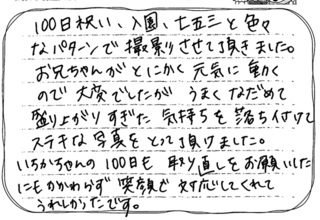 100日祝い、入園、七五三と色々
なパターンで撮影りさせて頂きました。
お兄ちゃんがとにかく元気に動く
ので大変でしたが うまくなだめて
盛り上がりすぎた 気持ちを落ち付けて
ステキな写真をとって頂けました。
いちかちゃんの100日も 取り直しをお願いした
にもかかわらず 笑顔で対応してくれて
うれしかったです。